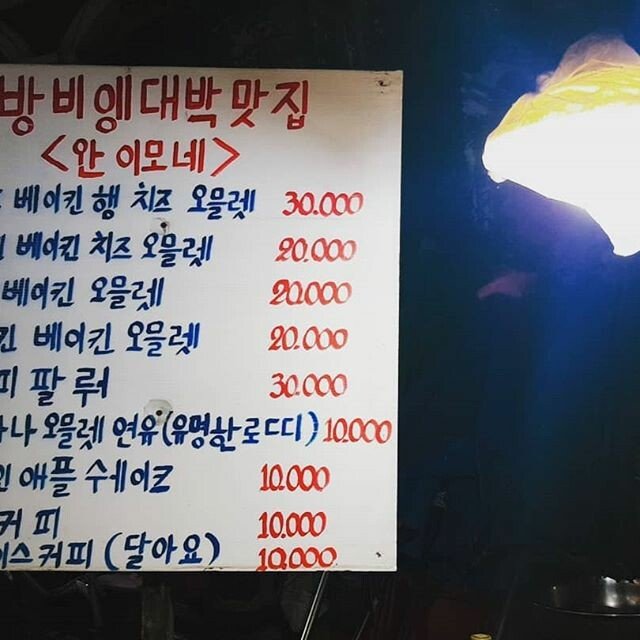 방비엥대박맛집
<안 이모네>
베이킨 행 치즈 오믈렛 30.000
베이킨 치즈 오믈렛 20.000
베이킨 오믈렛 20.000
킨 베이킨 오믈렛 20.000
피 팔 뤄 30.000
나나 오믈렛 연유(유명한로띠) 10.000
인 애플 수케이Z 10.000
커피 10.000
이스커피 (달아요) 10.000